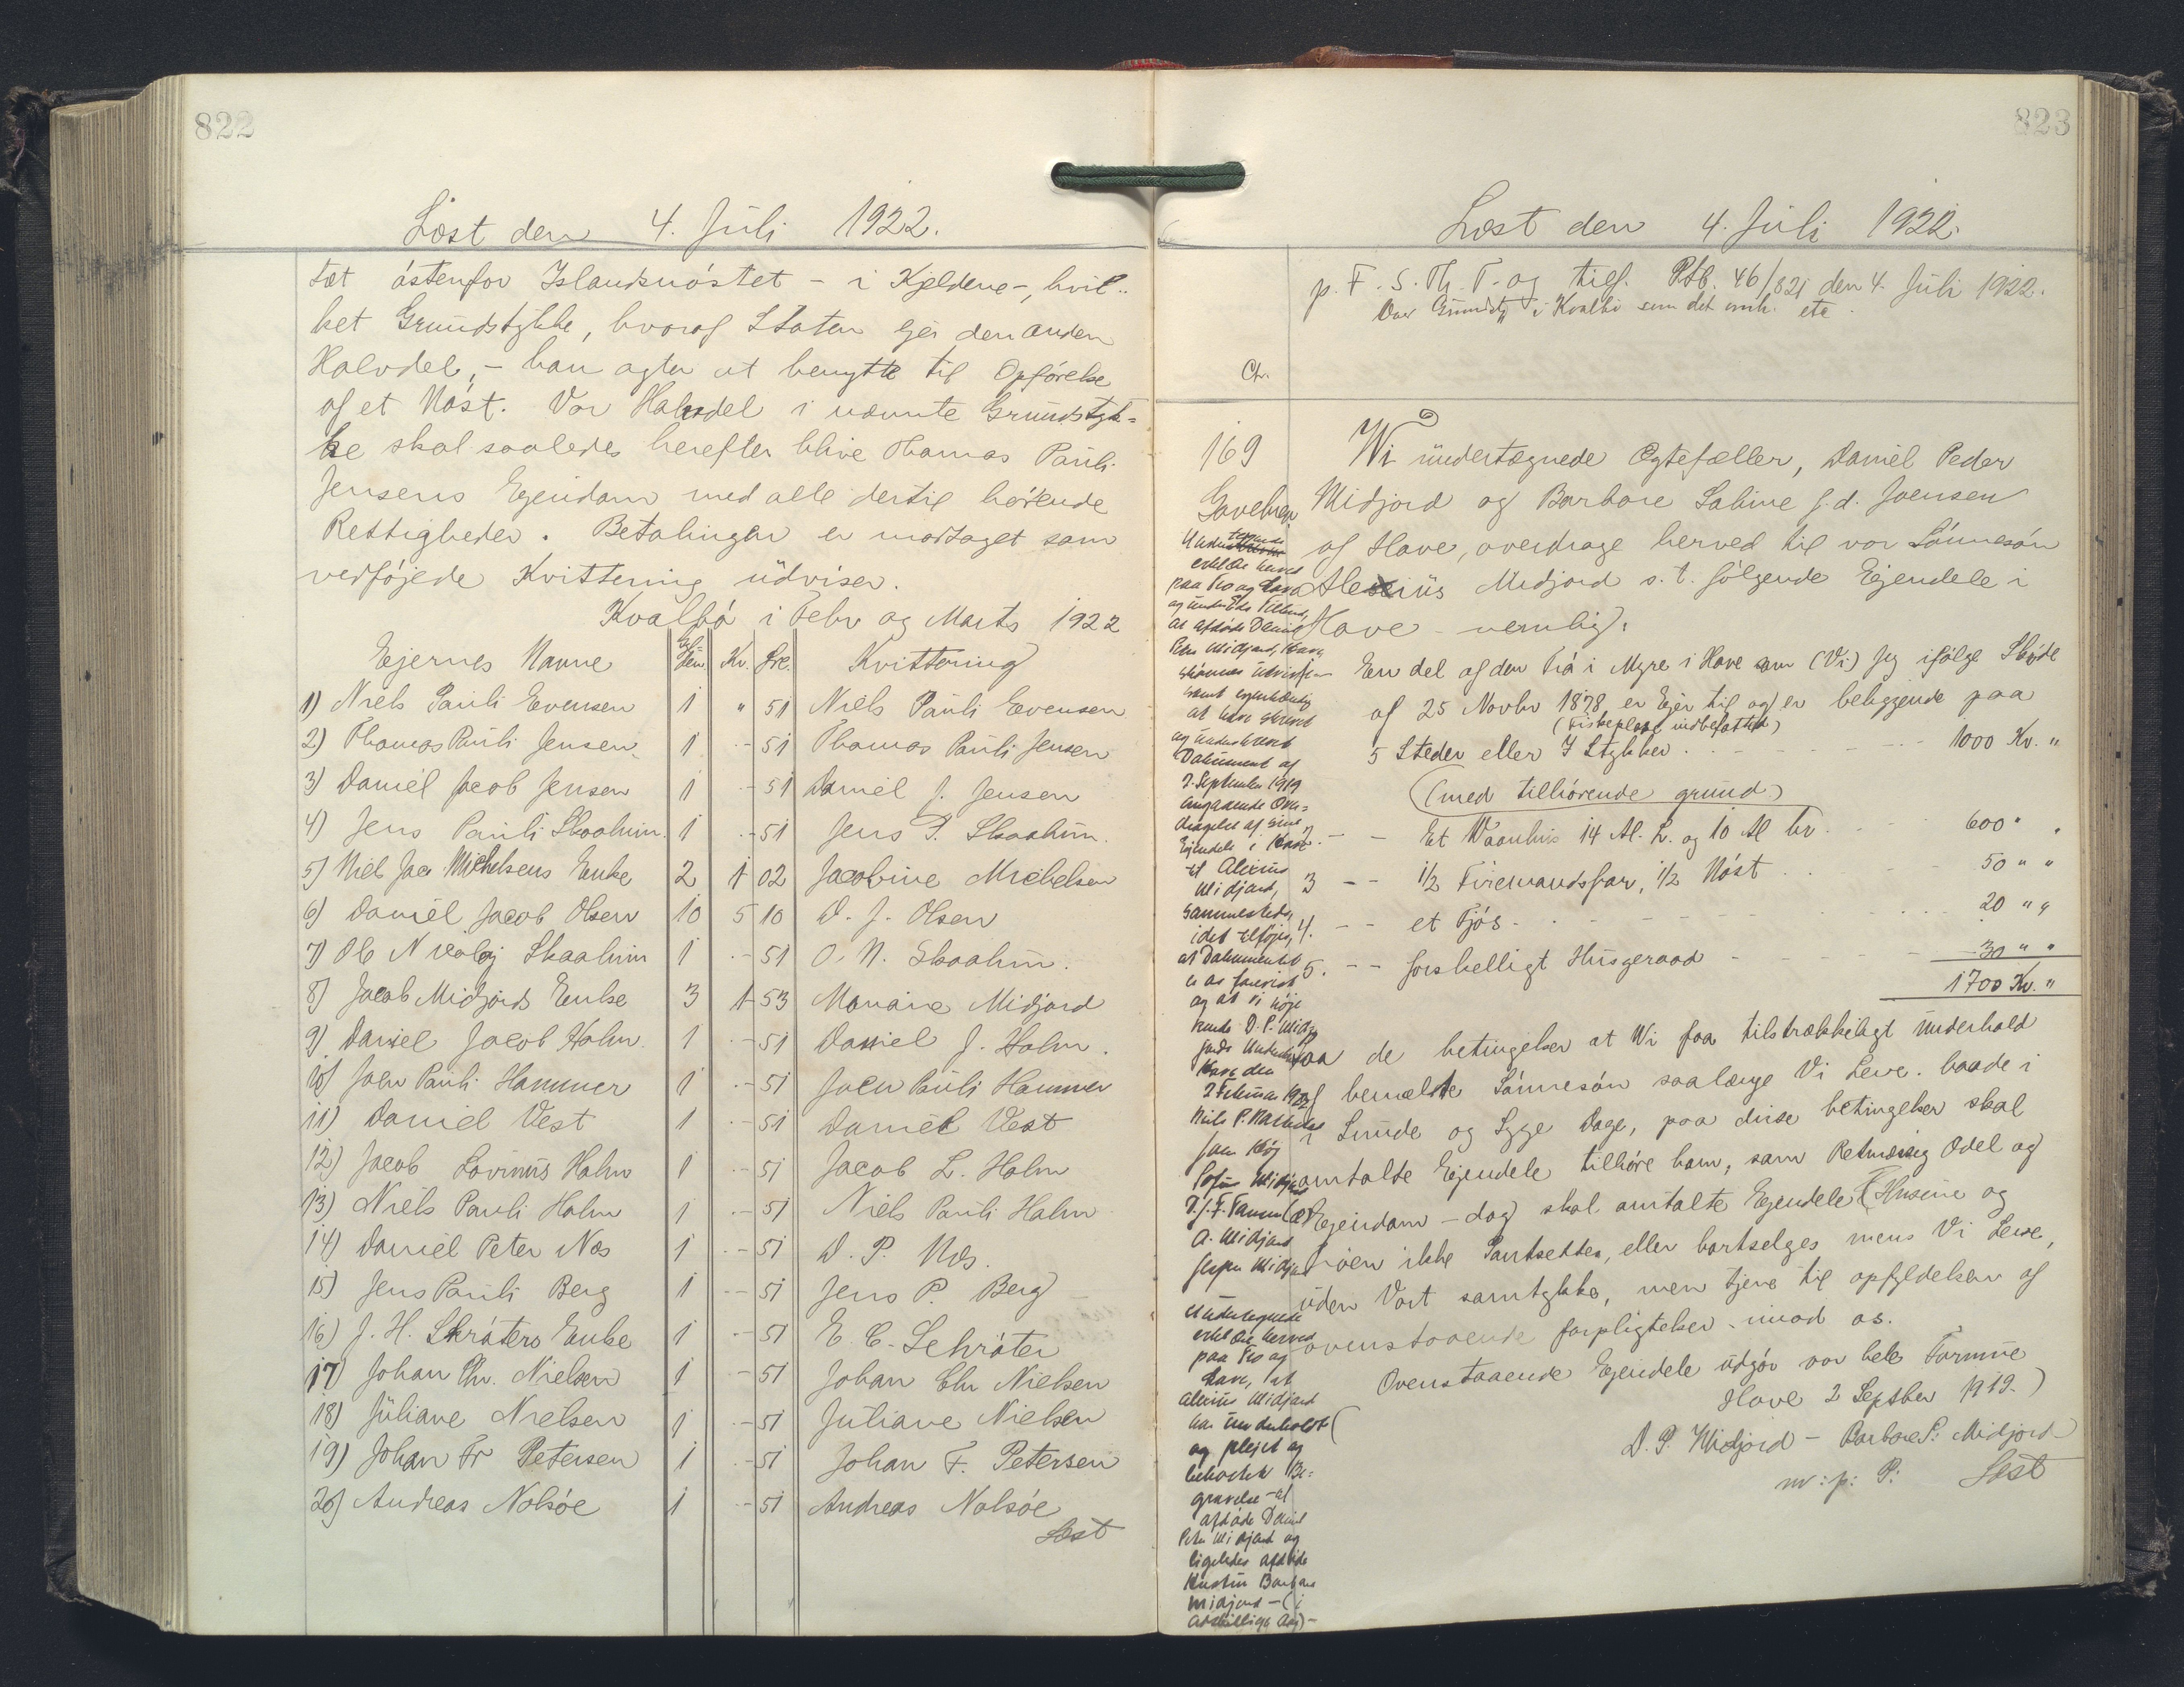 822
Læst den 4. Juli 1922.
tæt østenfor Islandsnøstet - i Kjeldene -, hvil-
ket Grundstykke, hvoraf Staten ejer den anden
Halvdel, - han agter at benytte til Opførelse
af et Nøst. Vor Halvdel i nævnte Grundstyk-
ke skal saaledes herefter blive Thomas Pauli
Jensens Ejendom med alle dertil hørende
Rettigheder. Betalingen er modtaget som
vedføjede Kvittering udviser.
Kvalbø i Febr og Marts 1922
Ejernes Navne Kr. Øre. Kvittering
1) Niels Pauli Evensen 1 " 51 Niels Pauli Evensen
2) Thomas Pauli Jensen 1 - 51 Thomas Pauli Jensen
3) Daniel Jacob Jensen 1 - 51 Daniel J. Jensen
4) Jens Pauli Skaalum 1 - 51 Jens P. Skaalum.
5) Niels Jac Michelsens Enke 2 1 02 Jacobine Michelsen
6) Daniel Jacob Olsen 10 5 10 D. J. Olsen
7) Ole Nicolaj Skaalum 1 - 51 O. N. Skaalum.
8) Jacob Midjords Enke 3 1 53 Mariane Midjord
9) Daniel Jacob Holm 1 - 51 Daniel J. Holm.
10) Joen Pauli Hammer 1 - 51 Joen Pauli Hammer
11) Daniel Vest 1 - 51 Daniel Vest
12) Jacob Lovinus Holm 1 - 51 Jacob L. Holm
13) Niels Pauli Holm 1 - 51 Niels Pauli Holm
14) Daniel Peter Næs 1 - 51 D. P. Næs.
15) Jens Pauli Berg 1 - 51 Jens P. Berg
16) J. H. Schrøters Enke 1 - 51 E. C. Schrøter
17) Johan Chr. Nielsen 1 - 51 Johan Chr Nielsen
18) Juliane Nielsen 1 - 51 Juliane Nielsen
19) Johan Fr Petersen 1 - 51 Johan F. Petersen
20) Andreas Nolsøe 1 - 51 Andreas Nolsøe
Læst
823
Læst den 4. Juli 1922.
p. F. S. Th. T. og tilf. Ptb. 46/821 den 4. Juli 1922.
Over Grundst. i Kvalbø som det omh. etc.
Ch.
169
Gavebrev
Undertegnede
erklære herved
paa Tro og Love
og under Eds Tilbud,
at afdøde Daniel
Peter Midjord, Hove,
samt egenhændig
at have skrevet
og underskrevet
Dokument af
2. September 1919
angaaende Over-
dragelse af sine
Ejendele i Hove
til Alexius
Midjord,
sammesteds,
idet tilføjes,
at Dokumentet
er os forevist
og at vi nøje
kende D. P. Mid-
jords Underskrift
Hove den
2 Februar 1922
Joen Høj
A. Midjord
Jesper Midjord
Undertegnede
erklære herved
paa Tro og
Love, at
Alexius Midjord
har underholdt
og plejet og
bekostet Be-
gravelse af
afdøde Daniel
Peter Midjord og
ligeledes afdøde
Hustru Barbara
Midjord - (i
adskillige Aar) -
Wi undertegnede Egtefæller, Daniel Peder
Midjord og Barbare Sabine f.d. Joensen
af Hove, overdrage herved til vor Sønnesøn
Alexius Midjord s. t. følgende Ejendele i
Hove - nemlig:
En del af den Trø i Myre i Hove som (Vi) Jeg ifølge Skøde
af 25 Novbr 1878 er Ejer til og er beliggende paa
(Fiskeplads indbefattet)
5 Steder eller 7 Stykker . . . 1000 Kr. "
(med tilhørende grund)
2. - - Et Vaanhus 14 Al. L. og 10 Al br. 600 " "
3 - - 1/2 Firemandsfar, 1/2 Nøst . . 50 " "
4. - - et Fjøs - . . . 20 " "
5. - - forskelligt Husgeraad - - - 30 " "
1700 Kr. "
paa de betingelser at Wi faa tilstrækkeligt Underhold
af bemælte Sønnesøn saalænge Vi Leve. baade i
i Sunde og Syge Dage, paa disse betingelser skal
omtalte Ejendele tilhøre ham, som Retmæssig Odel og
Ejendom - dog skal omtalte Ejendele (Husene og
Trøen ikke Pantsettes, eller bortselges mens Vi Leve,
uden Vort samtykke, men tjene til opfyldelsen af
ovenstaaende forpligtelser imod os.
Ovenstaaende Ejendele udgør vor hele Formue
Hove 2 Septber 1919.)
D. P. Midjord - Barbare S. Midjord
m: p: P: Læst